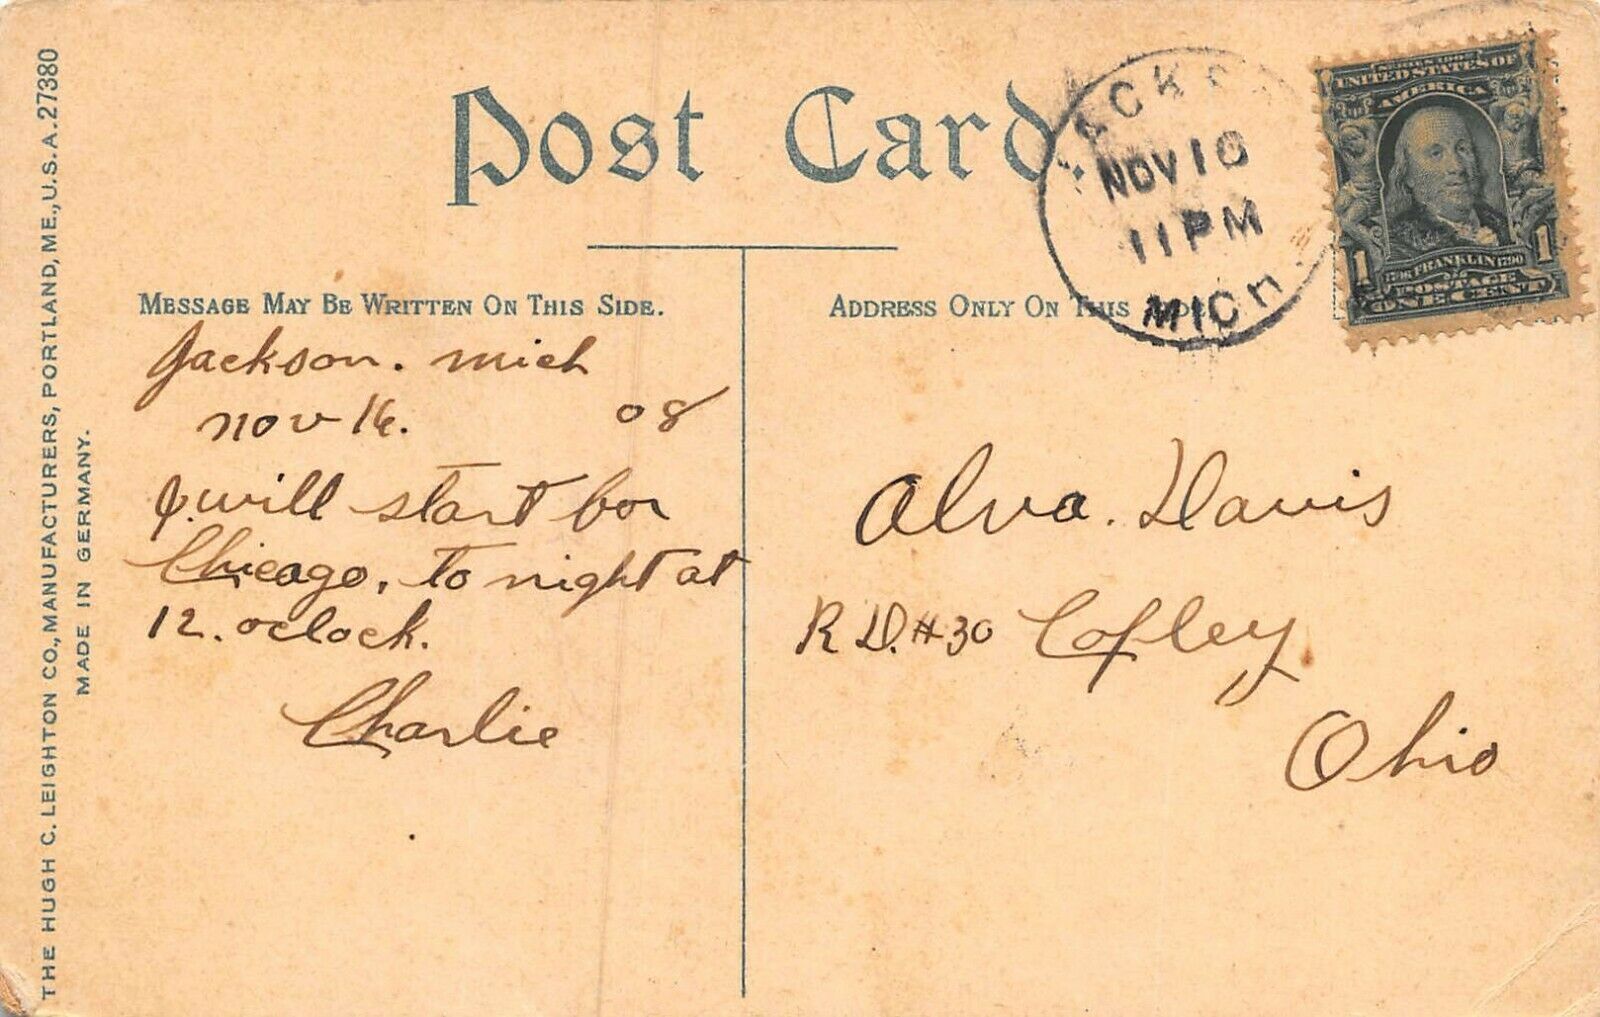 Post Card.
JACKSON
NOV 16
11 PM
MICH.
SERIES 1902
UNITED STATES OF
AMERICA
1706 FRANKLIN 1790
1 POSTAGE 1
ONE CENT
MESSAGE MAY BE WRITTEN ON THIS SIDE.
Jackson. Mich
Nov 16. 08
I will start for
Chicago, to night at
12. oclock.
Charlie
ADDRESS ONLY ON THIS SIDE.
Alva. Davis
R D. #30 Copley
Ohio
THE HUGH C. LEIGHTON CO., MANUFACTURERS, PORTLAND, ME., U.S.A. 27380
MADE IN GERMANY.